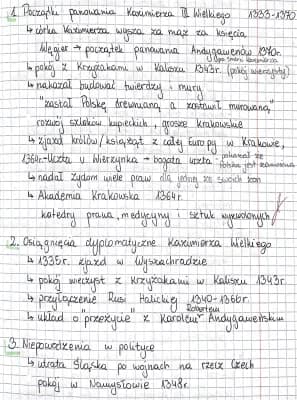 1. Początki panowania Kazimierza III Wielkiego 1333-1370
↳ córka Kazimierza wyszła za mąż za księcia
Węgier → początek panowania Andegawenów 1370r.
po śmierci Kazimierza
↳ pokój z Krzyżakami w Kaliszu 1343r. (pokój wieczysty)
↳ nakazał budować twierdzy i mury
"zastał Polskę drewnianą, a zostawił murowaną"
rozwój szlaków kupieckich, grosze krakowskie
↳ zjazd królów/książąt z całej Europy w Krakowie,
1364r.-Uczta u Wierzynka → bogata uczta - pokazał że
Polska jest
↳ nadał żydom wiele praw dla jednej ze swoich żon
↳ Akademia Krakowska 1364r.
katedry prawa, medycyny i sztuk wyzwolonych
2. Osiągnięcia dyplomatyczne Kazimierza Wielkiego
↳ 1335r. zjazd w Wyszechradzie
↳ pokój wieczyst z Krzyżakami w Kaliszu 1343r
↳ przyłączenie Rusi Halickiej 1340-1366r.
Robertem
↳ układ o "przeżycie" z Karolem Andegaweńskim
3. Niepowodzenia w polityce
↳ utrata Śląska po wojnach na rzecz Czech
pokój w Namysłowie 1348r.